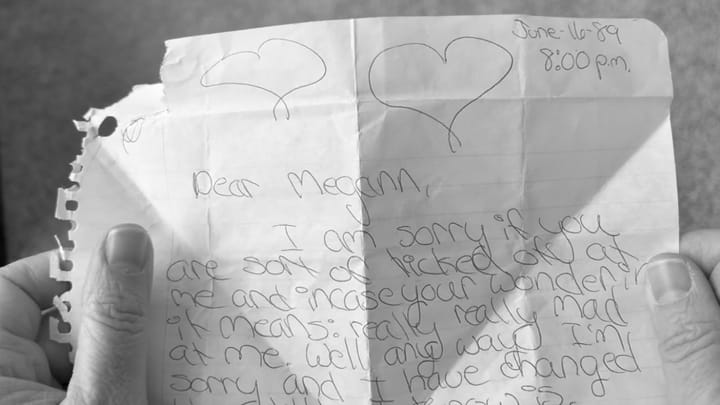 June-16-89
8:00 p.m.
Dear Megann,
I am sorry if you
are sort of ticked off at
me and incase your wonderin
it means: really really mad
at me. Well any way I'm
sorry and I have changed